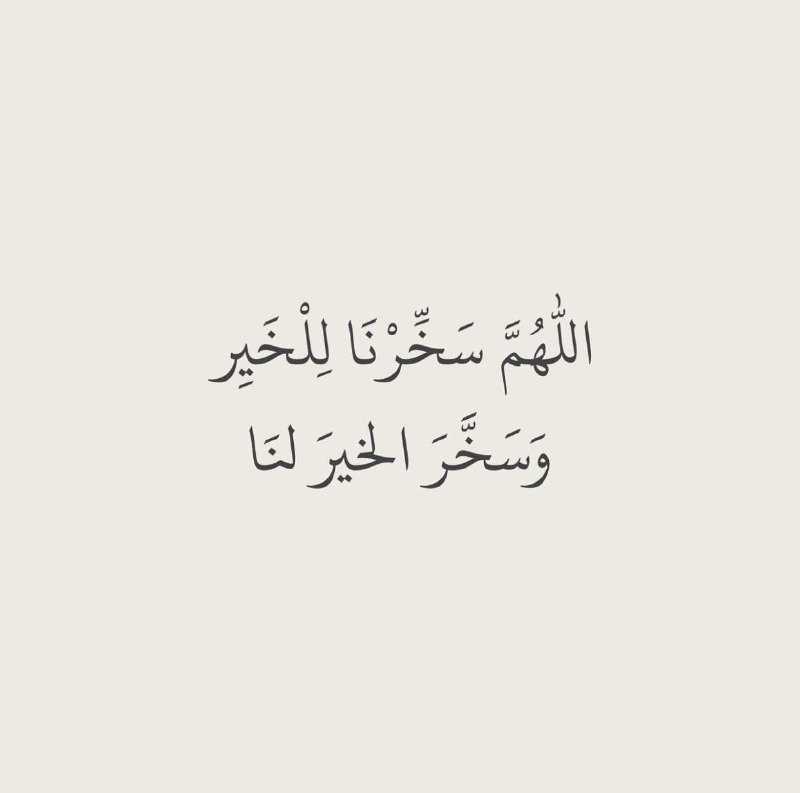 اللّٰهُمَّ سَخِّرْنَا لِلْخَيِرِ
وَسَخَّرَ الخيرَ لنَا